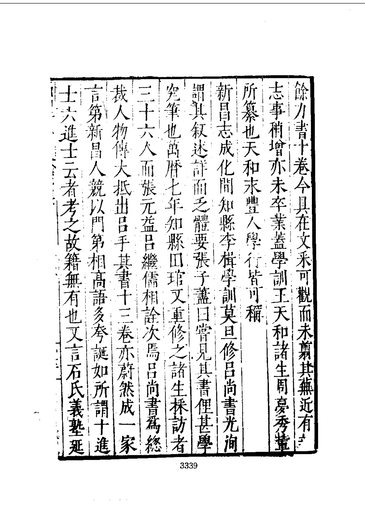 餘力書十卷今具在文采可觀而未翦其蕪近有
志事稍增亦未卒業蓋學訓王天和諸生周夢秀輩
所纂也天和末豐人學行皆可稱
新昌志成化間知縣李楫學訓莫旦修呂尚書光洵
謂其叙述詳而乏體要張子藎曰嘗見其書俚甚學
究筆也萬曆七年知縣田琯又重修之諸生採訪者
三十六人而張元益呂繼儒相詮次焉呂尚書為總
裁人物傳大抵出呂手其書十三卷亦蔚然成一家
言第新昌人競以門第相高語多夸誕如所謂十進
士六進士云者考之故籍無有也又言石氏義塾延
3339